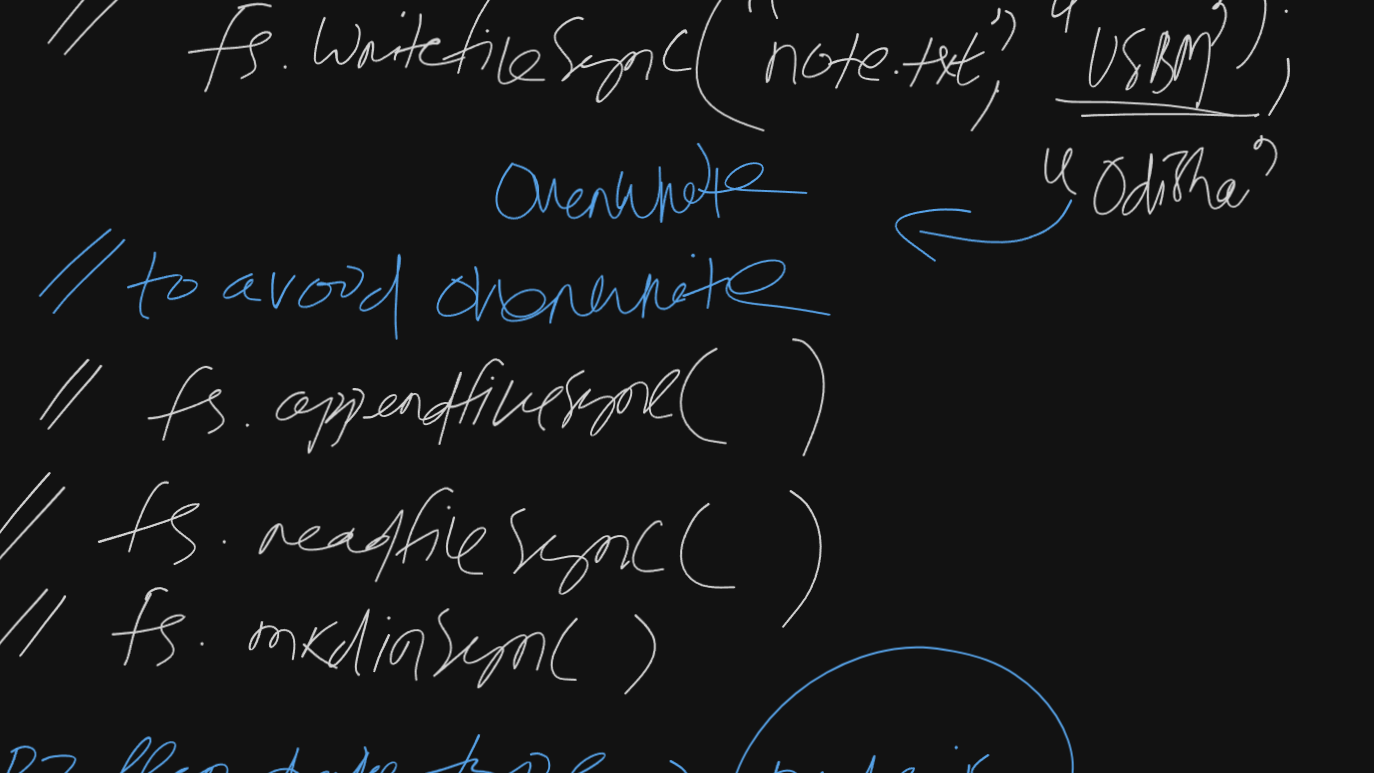 // fs.writefileSync("note.txt", "USBM");
"Odisha"
Overwrite
// to avoid overwrite
// fs.appendfileSync( )
// fs.readfileSync( )
// fs.mkdirSync( )